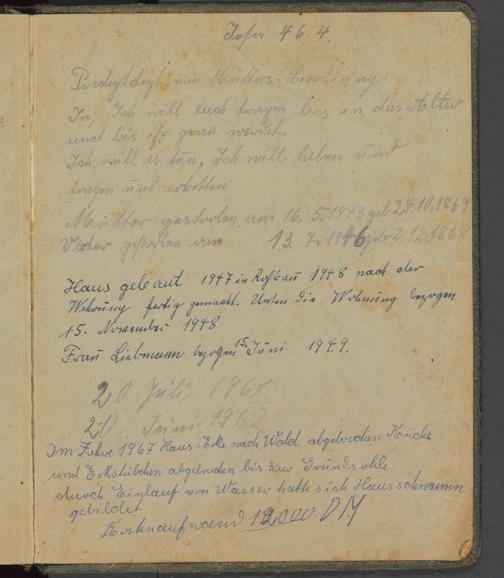 Jesai 46.4.
Predigttext von Mutters Beerdigung
Ja, Ich will euch tragen bis in das Alter
und bis ihr grau werdet.
Ich will es tun, Ich will heben und
tragen und erretten
Mutter gestorben am 16.5.1943 geb 24.10.1869
Vater gestorben am 13.7.1946 geb 2.12.1868
Haus gebaut 1947 in Rohbau 1948 nach der
Währung fertig gemacht. Unten die Wohnung bezogen
15. November 1948
Frau Liebmann bezogen 15. Juni 1949.
20 Juli 1961
20 Juni 1962
Im Jahre 1967 Haus-Ecke nach Wald abgebrochen Küche
und Eckstübchen abgebrochen bis zur Grundsohle
durch Einlauf von Wasser hatte sich Hausschwamm
gebildet
Kostenaufwand 12000 DM